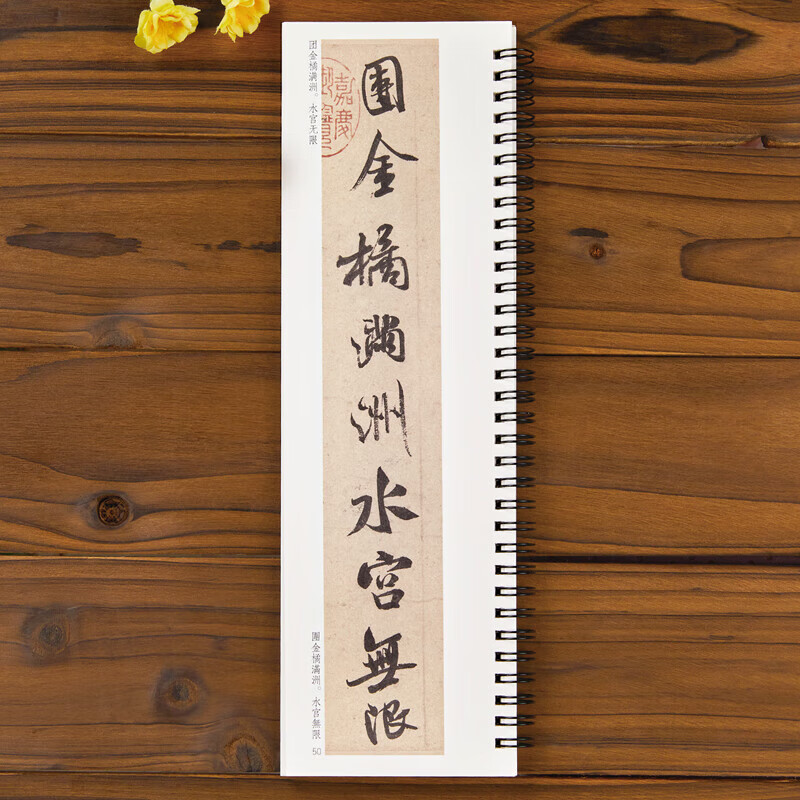 团金橘满洲。水宫无限
團金橘滿洲水宮無限
嘉慶
團金橘滿洲。水宮無限
50